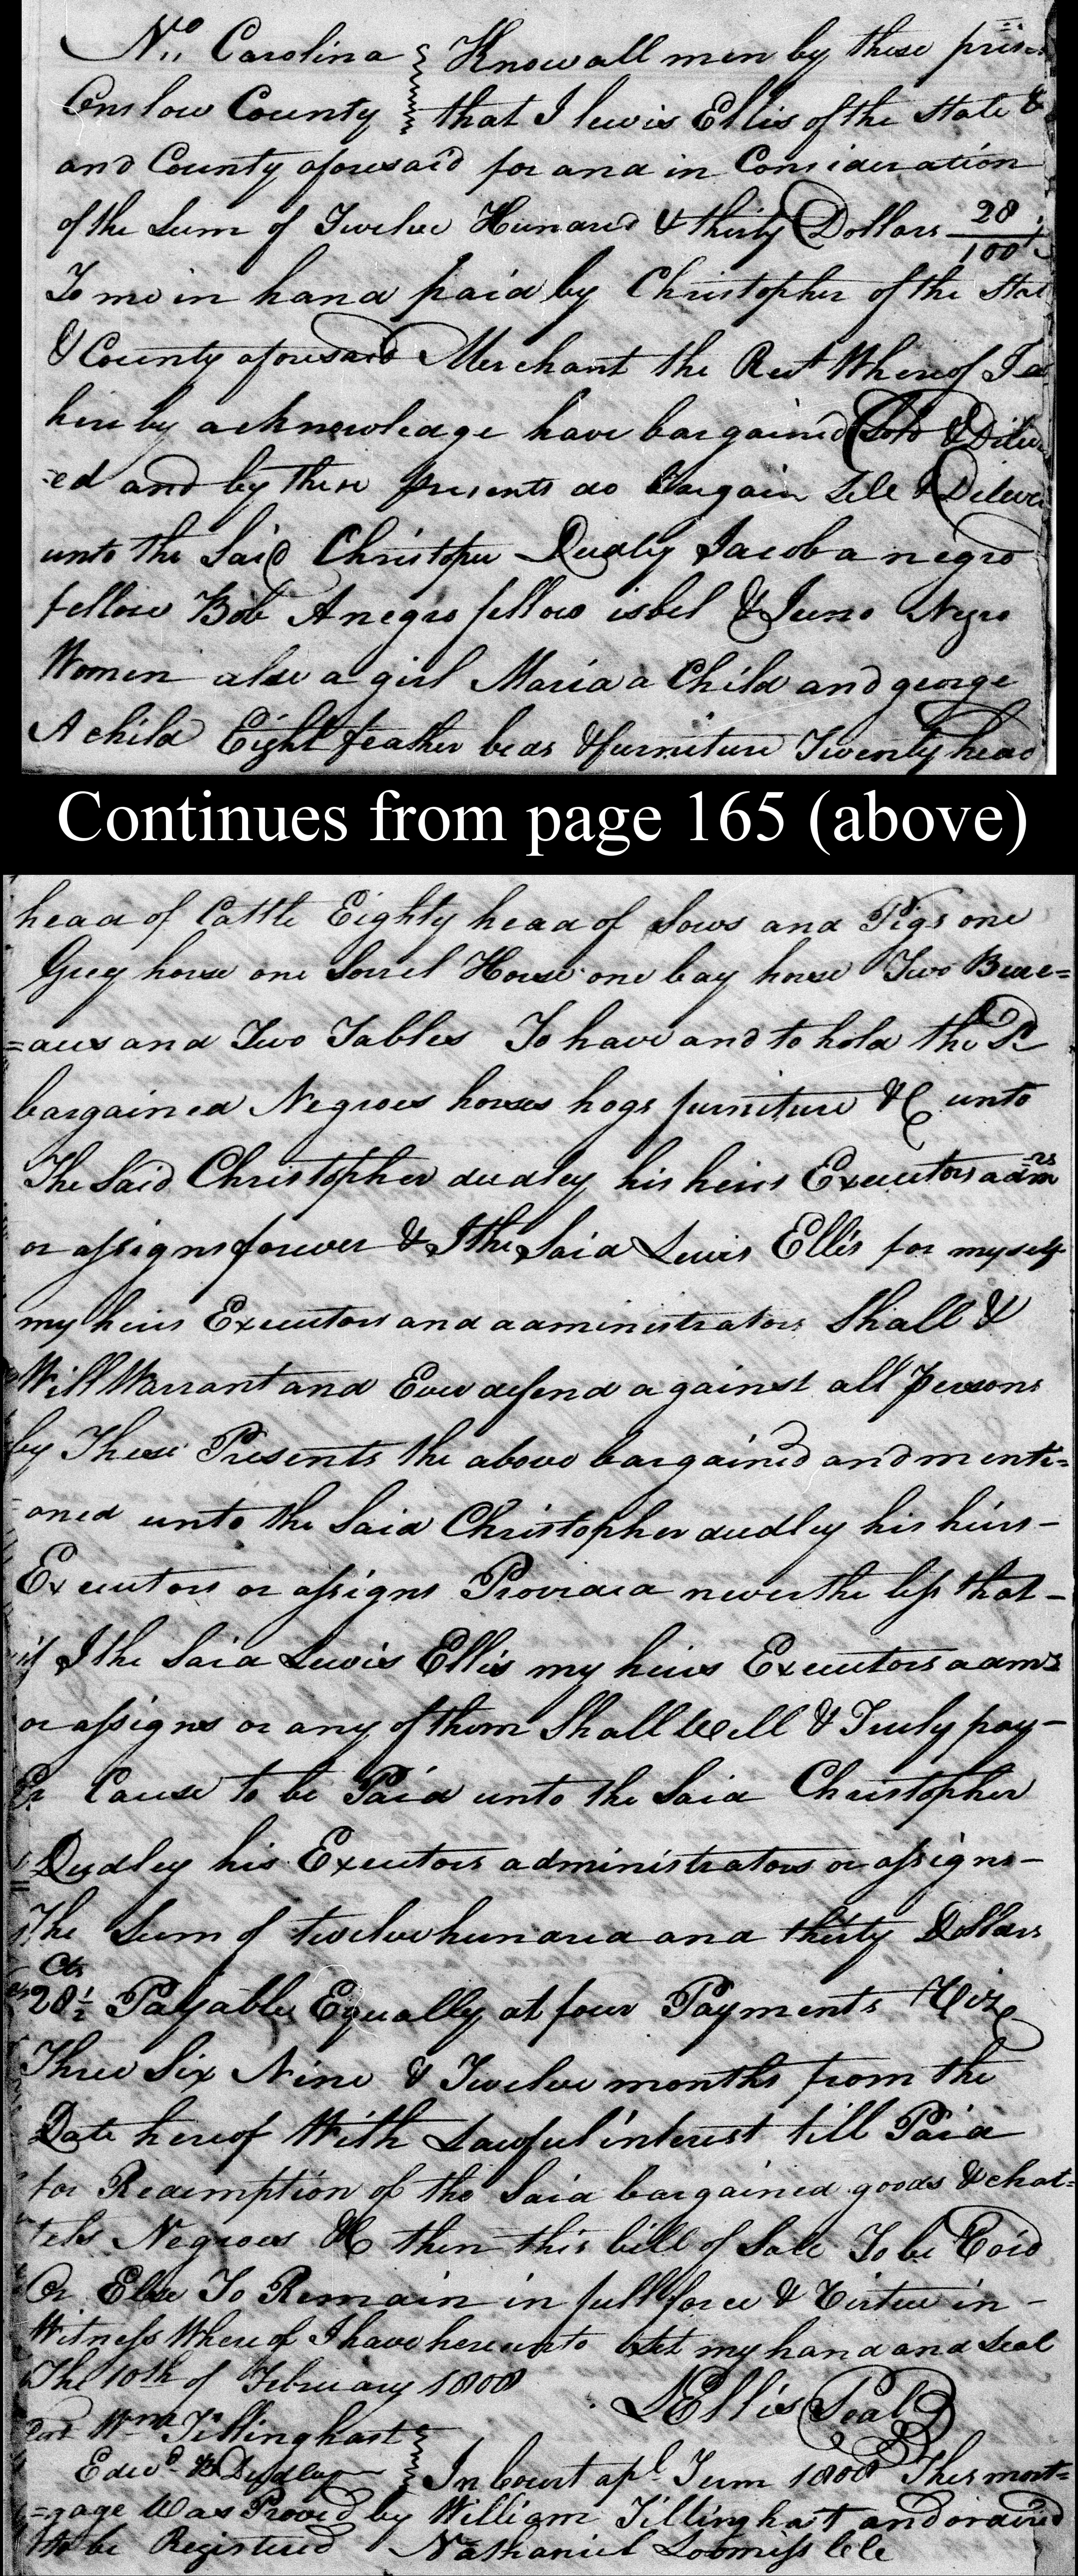 No,, Carolina } Know all men by these prese
Onslow County } that I lewis Ellis of the State &
and County aforesaid for and in Consideration
of the Sum of Twelve Hunared & thirty Dollars 28/100
To me in hand paid by Christopher of the Stat
& County aforesaid Merchant the Rect Whereof I do
hereby acknowledge have bargained Sold & Diliver
=ed and by these presents do Bargain Sell & Deliver
unto the Said Christopher Dudley Jacob a negro
fellow Bob A negro fellow isbel & Juno Negro
Women also a girl Maria a Child and george
A child Eight feather beds & furniture Twenty head
Continues from page 165 (above)
head of Cattle Eighty head of Sows and Pigs one
Grey horse one Sorrel Horse one bay horse Two Bure=
=aus and Two Tables To have and to hold the Sd
bargained Negroes horses hogs furniture &C unto
The Said Christopher dudley his heirs Executors admrs
or assigns forever & I the Said Lewis Ellis for myself
my heirs Executors and administrators Shall &
Will Warrant and Ever defend against all Persons
by These Presents the above bargained and menti=
oned unto the Said Christopher dudley his heirs -
Executors or assigns Provided never the less that -
if I the Said Lewis Ellis my heirs Executors adms
or assigns or any of them Shall Well & Truly pay -
Or Cause to be Paid unto the Said Christopher
Dudley his Executors administrators or assigns -
The Sum of twelve hundred and thirty Dollars
Cts
28½ Payable Equally at four Payments Viz
Three Six Nine & Twelve months from the
Date hereof With Lawful interest till Paid
for Redemption of the Said bargained goods & chat=
tels Negroes &C then this bill of Sale To be Void
Or Else To Remain in full force & Virtue in -
Witness Whereof I have hereunto Set my hand and Seal
The 10th of February 1808
LEllis Seal
Test Wm Tillinghast
Edwd B Dudley } In Court apl Term 1808 This mort=
=gage Was Proved by William Tillinghast and ordered
to be Registered Nathaniel Loomiss Clk